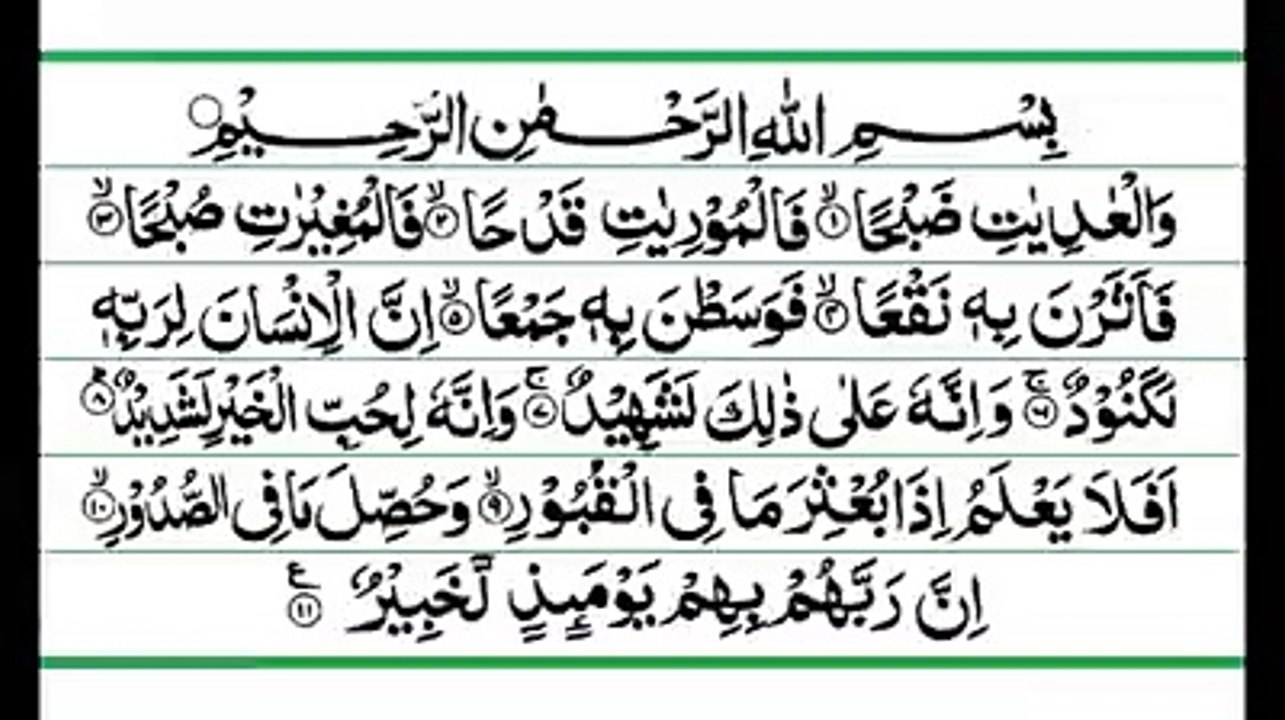 بِسْمِ اللّٰهِ الرَّحْمٰنِ الرَّحِيْمِ
وَالْعٰدِيٰتِ ضَبْحًا ۙ﴿۱﴾ فَالْمُوْرِيٰتِ قَدْحًا ۙ﴿۲﴾ فَالْمُغِيْرٰتِ صُبْحًا ۙ﴿۳﴾
فَاَثَرْنَ بِهٖ نَقْعًا ۙ﴿۴﴾ فَوَسَطْنَ بِهٖ جَمْعًا ۙ﴿۵﴾ اِنَّ الْاِنْسَانَ لِرَبِّهٖ
لَكَنُوْدٌ ۚ﴿۶﴾ وَاِنَّهٗ عَلٰى ذٰلِكَ لَشَهِيْدٌ ۚ﴿۷﴾ وَاِنَّهٗ لِحُبِّ الْخَيْرِ لَشَدِيْدٌ ؕ﴿۸﴾
اَفَلَا يَعْلَمُ اِذَا بُعْثِرَ مَا فِى الْقُبُوْرِ ۙ﴿۹﴾ وَحُصِّلَ مَا فِى الصُّدُوْرِ ۙ﴿۱۰﴾
اِنَّ رَبَّهُمْ بِهِمْ يَوْمَئِذٍ لَّخَبِيْرٌ ﴿۱۱﴾ ع